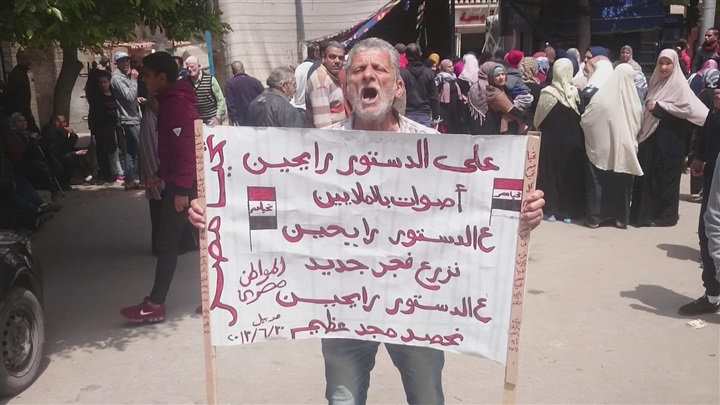 على الدستور رايحين
أصوات بالملايين
ع الدستور رايحين
نزرع فجر جديد
ع الدستور رايحين
نحصد مجد عظيم
تحيا مصر
تحيا مصر
المواطن
مصري
٢٠١٣/٦/٣٠